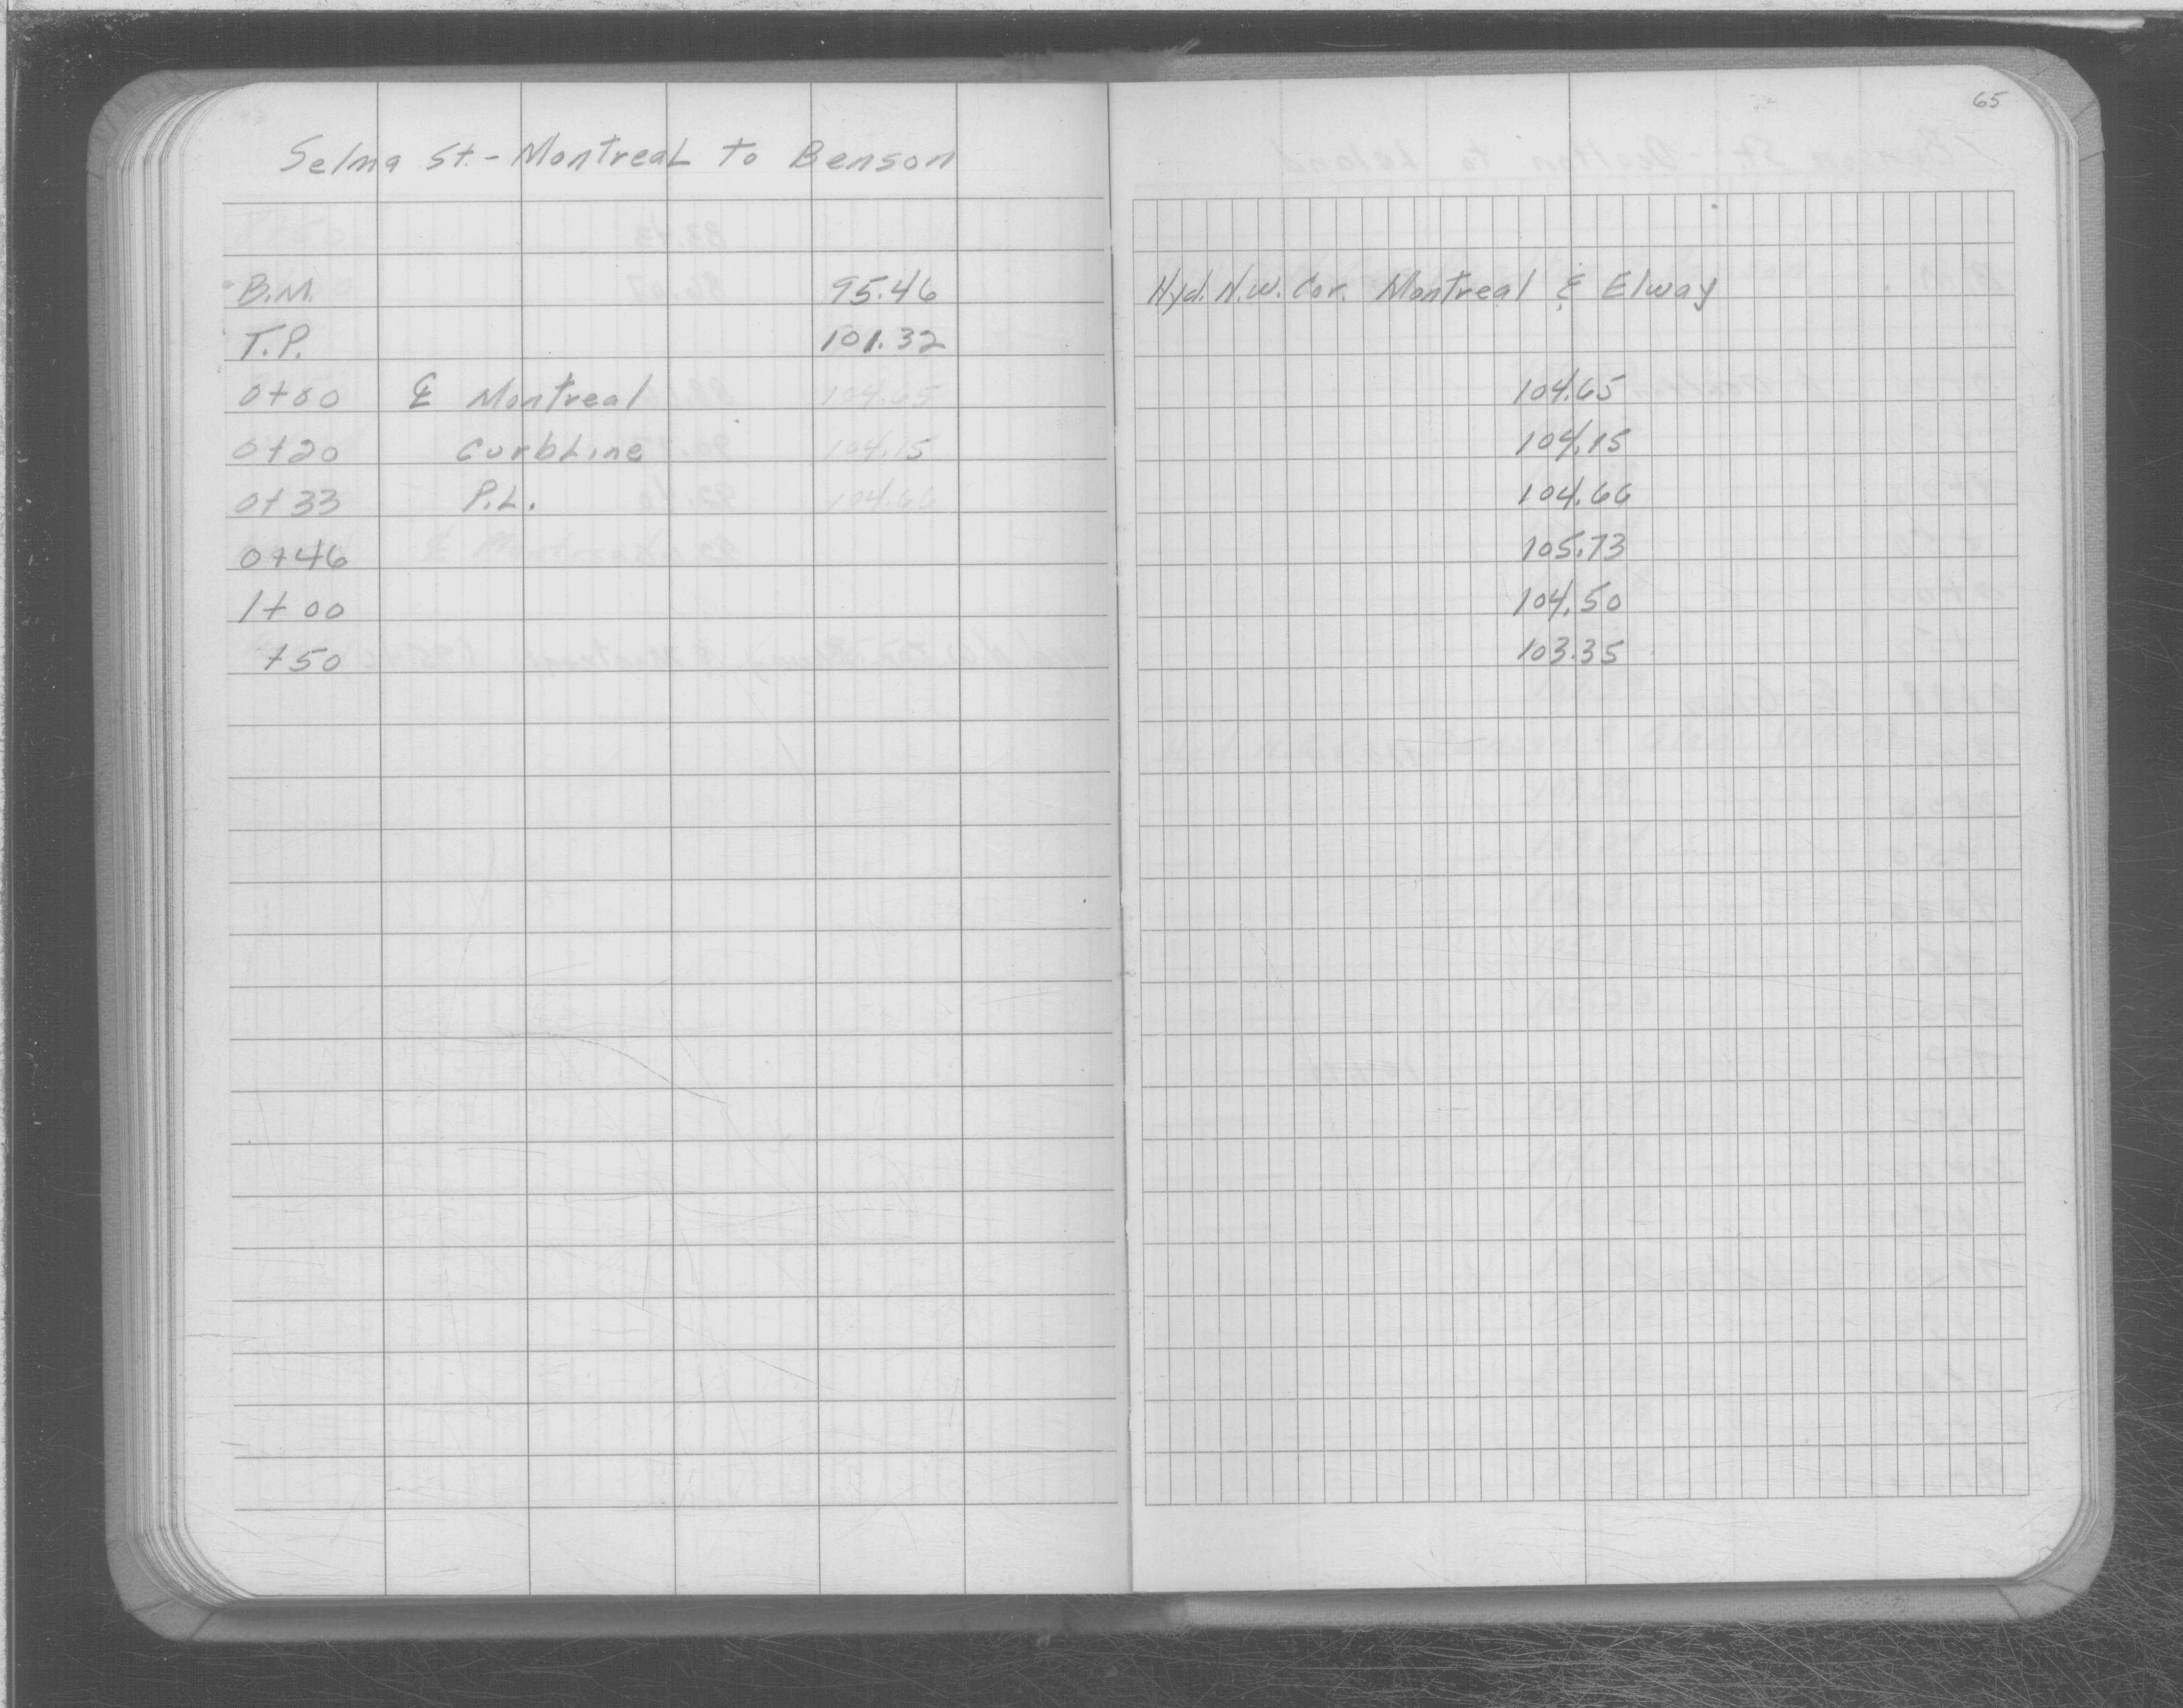 65
Selma St. - Montreal to Benson
B.M. 95.46 Hyd. N.W. Cor. Montreal & Elway
T.P. 101.32
0+00 ℄ Montreal 104.65 104.65
0+20 Curb Line 104.15 104.15
0+33 P.L. 104.66 104.66
0+46 105.73
1+00 104.50
+50 103.35